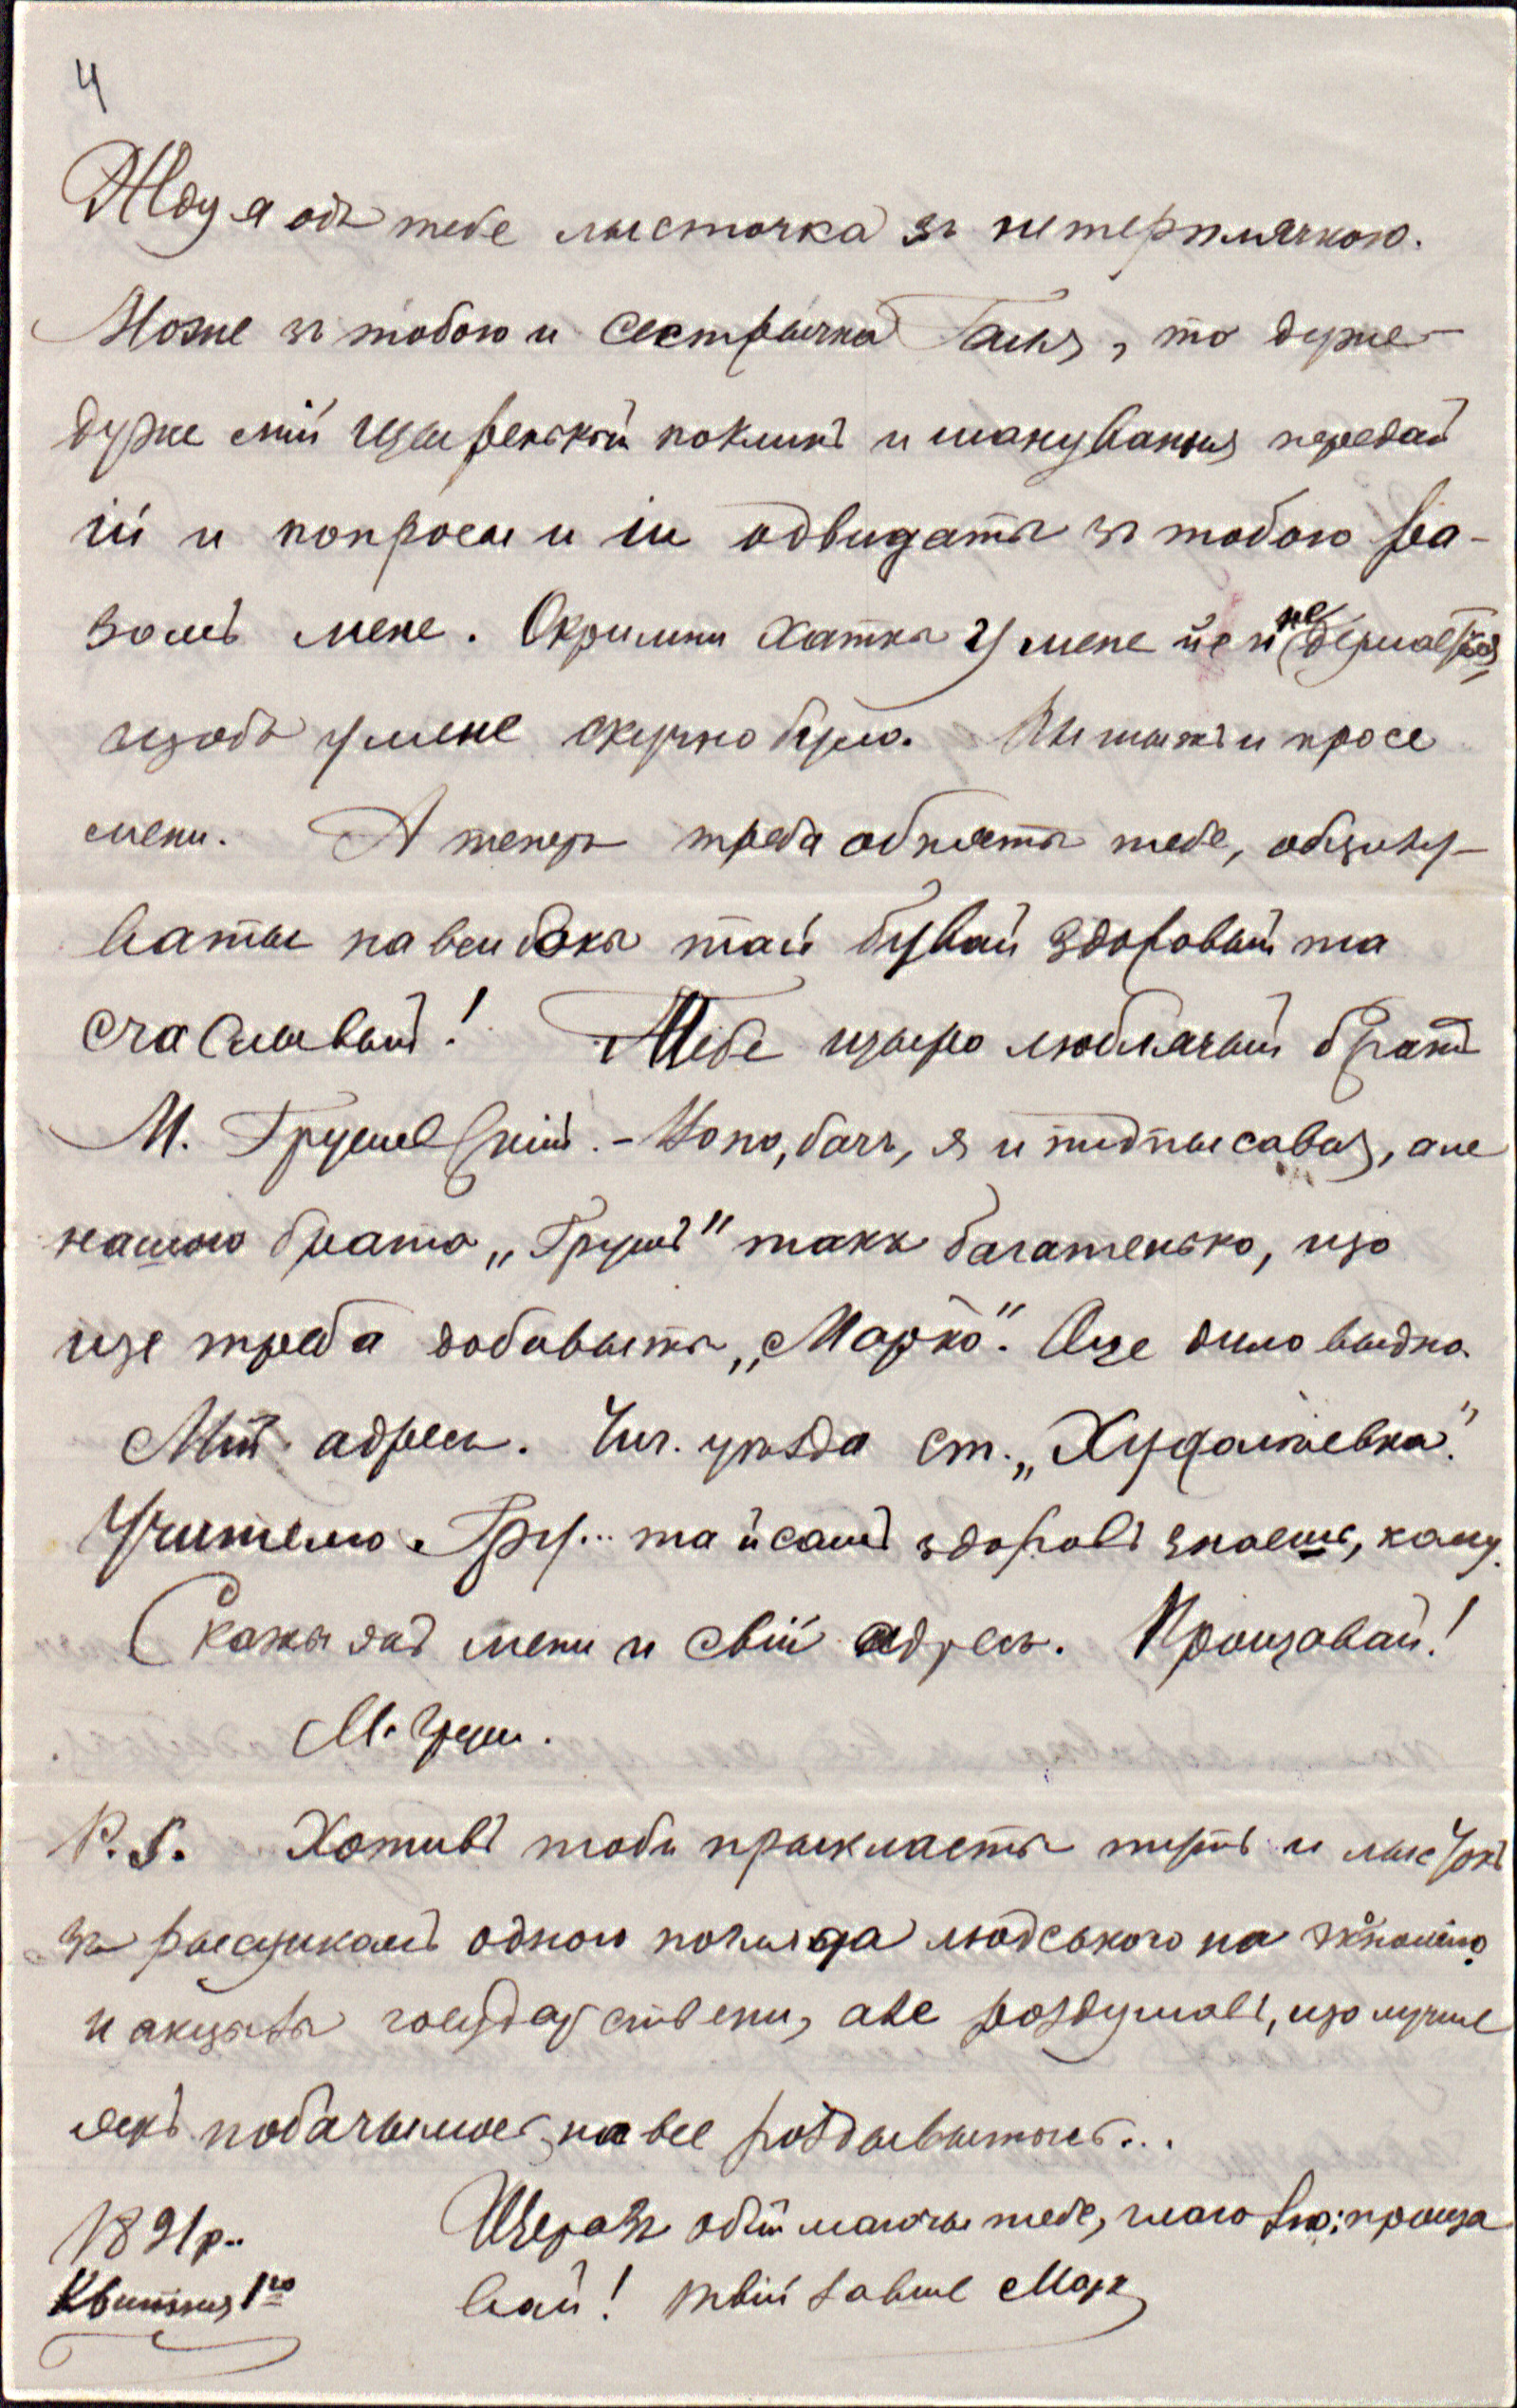 4
Жду я одъ тебе лысточка зъ нетерплячкою.
Може зъ тобою и сестрычка Ганя, то дуже-
дуже мій щыренькый поклинъ и шанування передай
ій и попросы и іи одвидаты зъ тобою ра-
зомъ мене. Окримни хатка у мене йе й не
щобъ у мене скучно було. просе
мени. А теперъ треба обняты тебе, обцилу-
ваты на вси бокы тай бувай здоровый та
счаслывый! Тебе щыро люблячый братъ
М. Грушевскій. - Воно, бачъ, я и пидпысався, але
нашого брата „Грушъ" такъ багатенько, що
ще треба добавыты „Марко". Оце дило выдно.
Мій адресъ. Чиг. уѣзда ст. „Худоліевка".
Учителю Гру... та й самъ здоровъ знаешъ, кому.
Скажы задъ мени и свій адресъ. Прощавай!
М. Груш.
P.S. Хотивъ тоби прыкласты тутъ и лыстокъ
зъ рысункомъ одного погляда людського на
и акцызы государствени, але роздумавъ, що лучше
якъ побачымось, на все роздывытысь...
1891 р. Щеразъ обіймаючы тебе, глаголю: проща
Квитня 1го вай! твій завше Марк